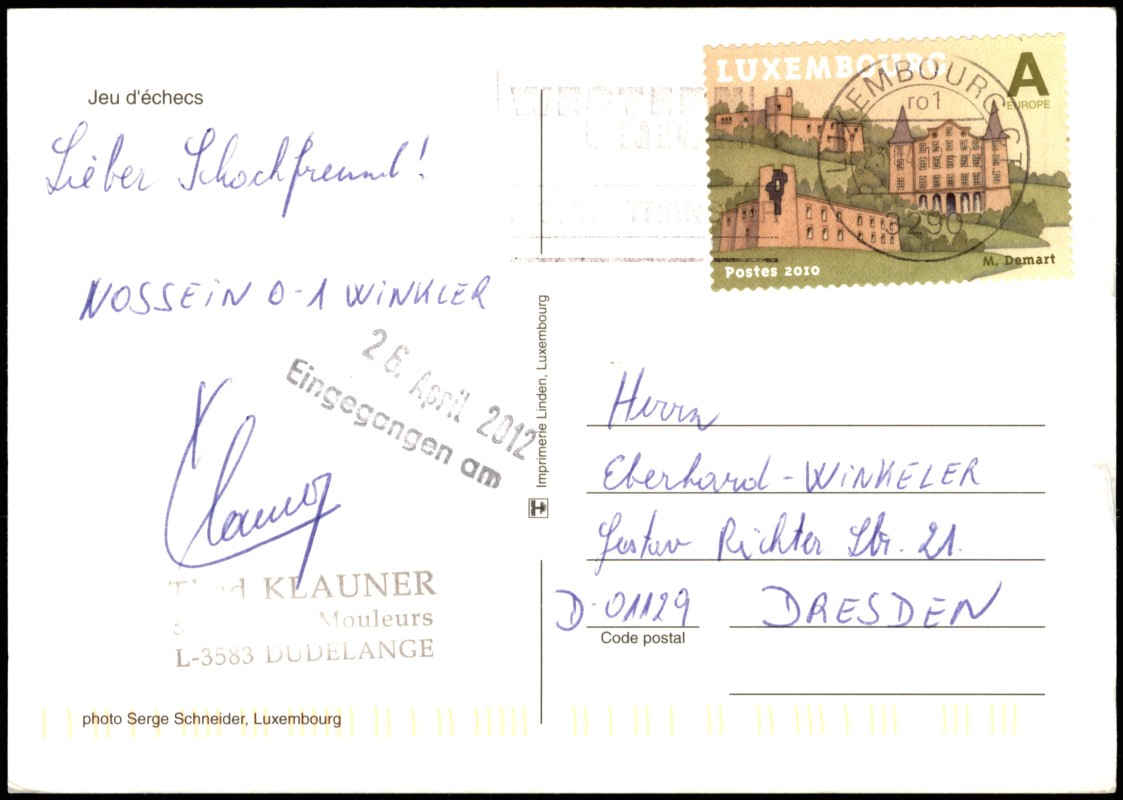 Jeu d'échecs
Lieber Schachfreund!
NOSSEIN 0-1 WINKLER
26. April 2012
Eingegangen am
KLAUNER
Mouleurs
L-3583 DUDELANGE
photo Serge Schneider, Luxembourg
Imprimerie Linden, Luxembourg
LUXEMBOURG
A
EUROPE
Postes 2010
M. Demart
LUXEMBOURG
ro1
3290
Herrn
Eberhard-WINKELER
Gustav Richter Str. 21.
D-01129 DRESDEN
Code postal